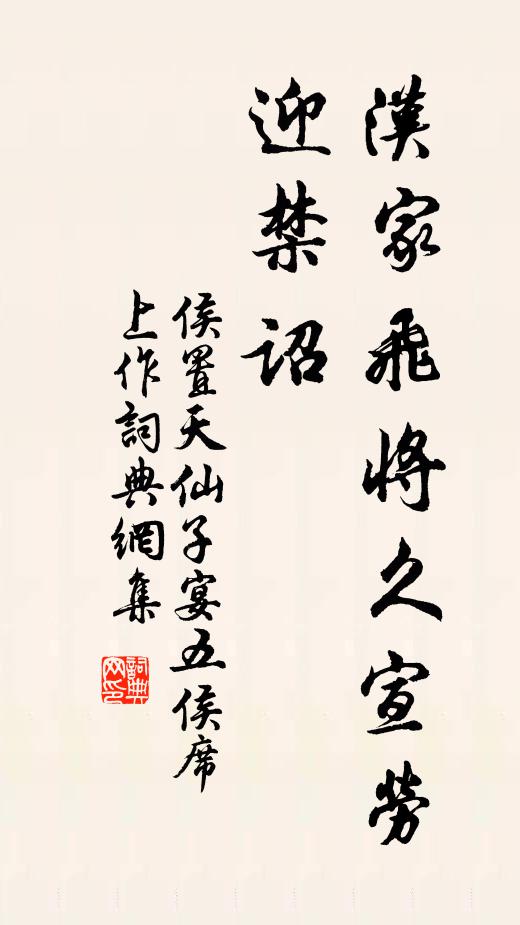 漢家飛將久宣勞
迎禁詔
侯置天仙子宴五侯席
上作詞典網集
詞典网印